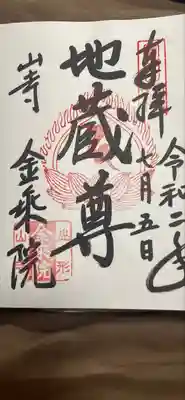 奉拝
令和二年
七月五日
地蔵尊
山寺
金乗院